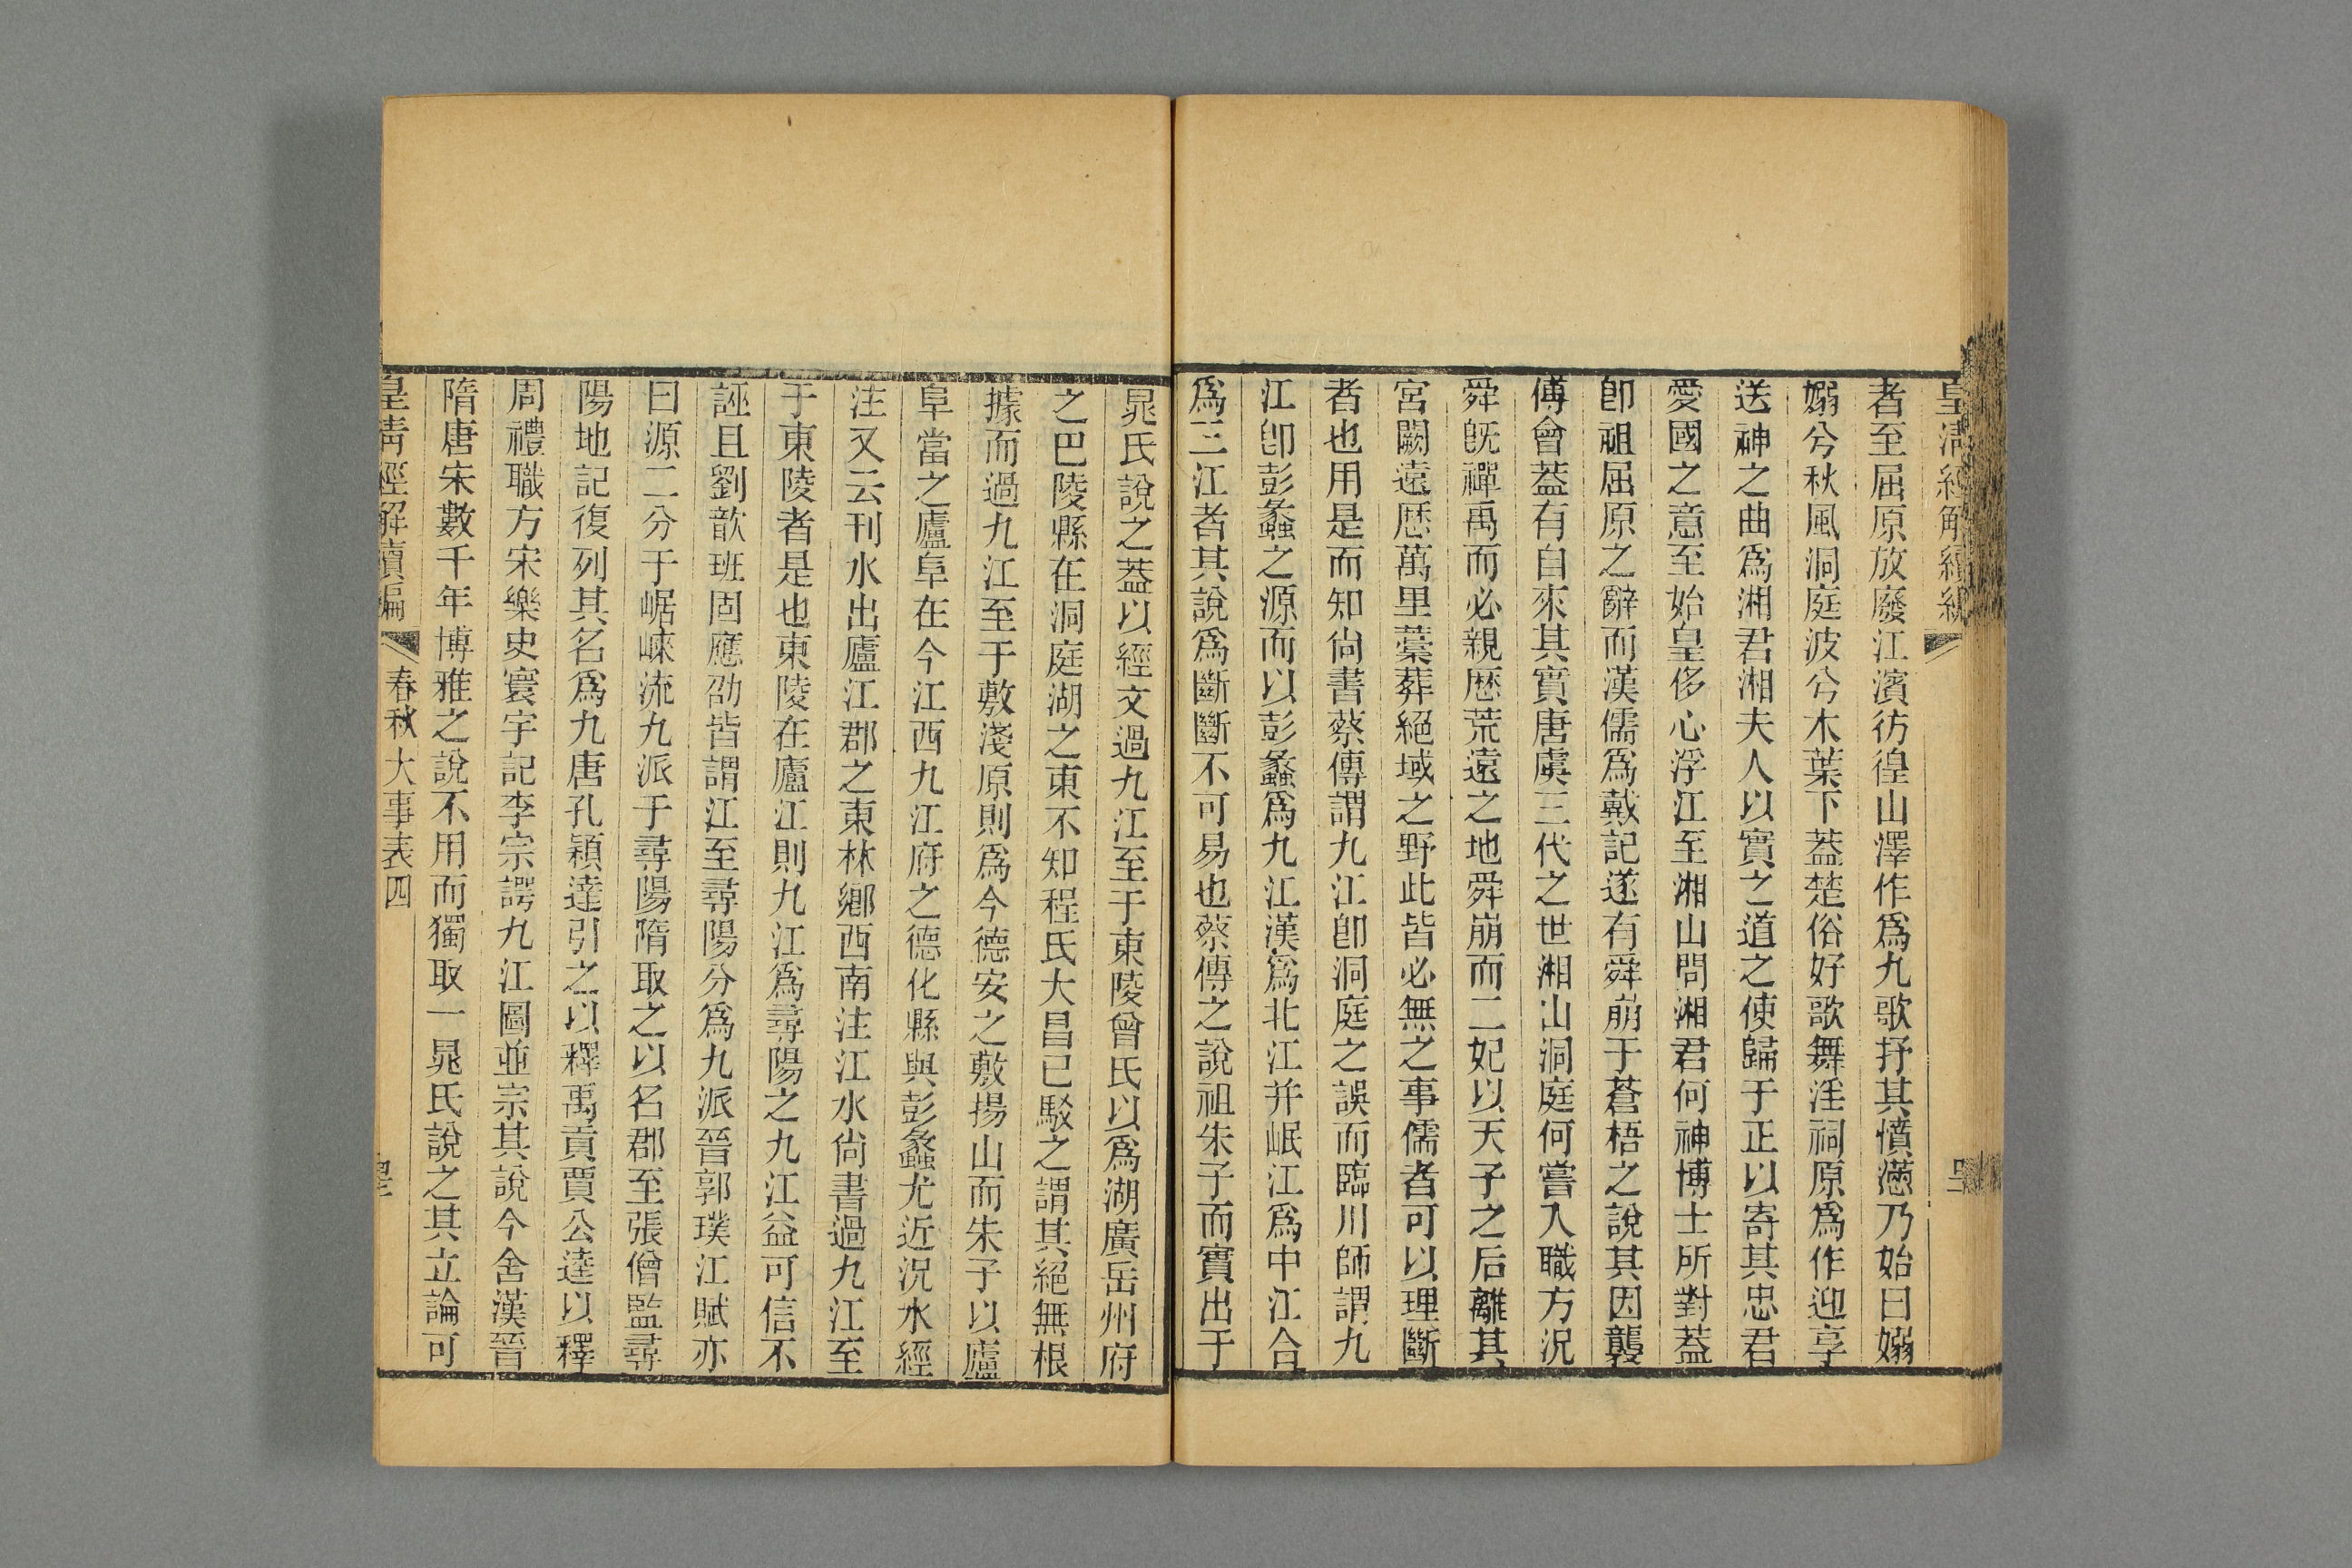 皇清經解續編
者至屈原放廢江濱彷徨山澤作爲九歌抒其憤懣乃始曰嫋
嫋兮秋風洞庭波兮木葉下葢楚俗好歌舞淫祠原爲作迎享
送神之曲爲湘君湘夫人以實之道之使歸于正以寄其忠君
愛國之意至始皇侈心浮江至湘山問湘君何神博士所對葢
卽祖屈原之辭而漢儒爲戴記遂有舜崩于蒼梧之說其因襲
傅會葢有自來其實唐虞三代之世湘山洞庭何嘗入職方況
舜旣禪禹而必親歷荒遠之地舜崩而二妃以天子之后離其
宮闕遠歷萬里藁葬絕域之野此皆必無之事儒者可以理斷
者也用是而知尚書蔡傳謂九江卽洞庭之誤而臨川師謂九
江卽彭蠡之源而以彭蠡爲九江漢爲北江并岷江爲中江合
爲三江者其說爲斷斷不可易也蔡傳之說祖朱子而實出于
晁氏說之葢以經文過九江至于東陵曾氏以爲湖廣岳州府
之巴陵縣在洞庭湖之東不知程氏大昌已駁之謂其絕無根
據而過九江至于敷淺原則爲今德安之敷揚山而朱子以廬
阜當之廬阜在今江西九江府之德化縣與彭蠡尤近況水經
注又云刊水出廬江郡之東林鄉西南注江水尚書過九江至
于東陵者是也東陵在廬江則九江爲尋陽之九江益可信不
誣且劉歆班固應劭皆謂江至尋陽分爲九派晉郭璞江賦亦
曰源二分于崌崍流九派于尋陽隋取之以名郡至張僧監尋
陽地記復列其名爲九唐孔穎達引之以釋禹貢賈公逵以釋
周禮職方宋樂史寰宇記李宗諤九江圖並宗其說今舍漢晉
隋唐宋數千年博雅之說不用而獨取一晁氏說之其立論可
皇清經解續編 春秋大事表四